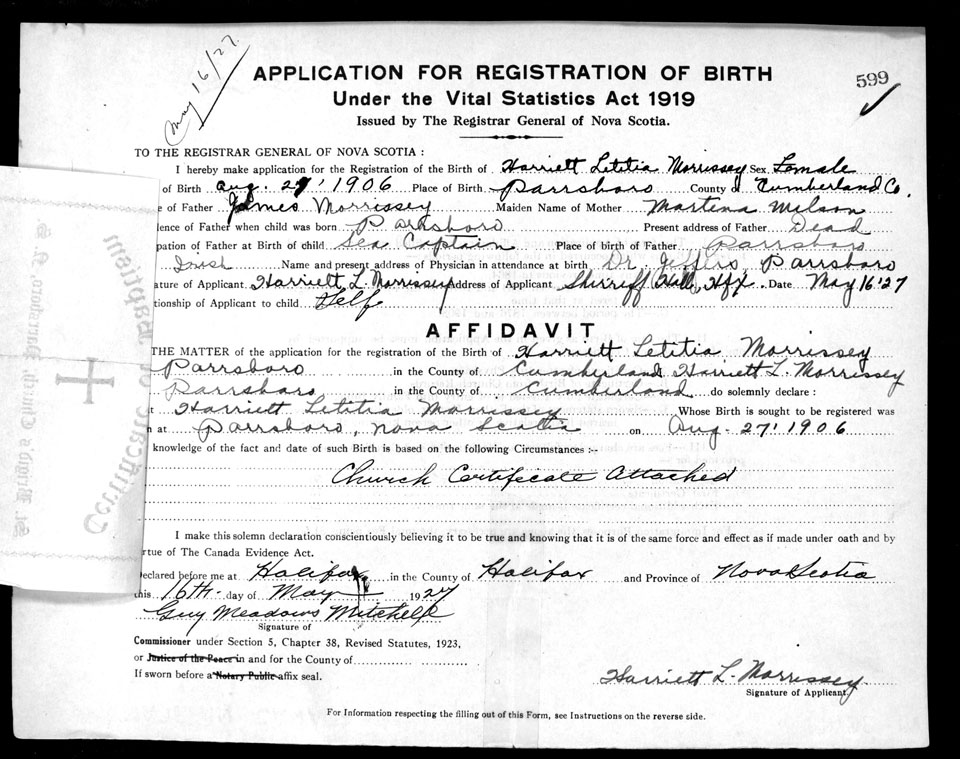 May 16/27.
599
APPLICATION FOR REGISTRATION OF BIRTH
Under the Vital Statistics Act 1919
Issued by The Registrar General of Nova Scotia.
TO THE REGISTRAR GENERAL OF NOVA SCOTIA :
I hereby make application for the Registration of the Birth of Harriett Letitia Morrissey Sex Female
of Birth Aug. 27' 1906 Place of Birth Parrsboro County of Cumberland Co.
of Father James Morrissey Maiden Name of Mother Martena
lence of Father when child was born Parrsboro Present address of Father Dead
pation of Father at Birth of child Sea Captain Place of birth of Father Parrsboro
Irish Name and present address of Physician in attendance at birth Dr. Jeffers, Parrsboro
ature of Applicant Harriett L. Morrissey Address of Applicant Shirriff Hall, Hfx. Date May 16' 27
tionship of Applicant to child Self
AFFIDAVIT
THE MATTER of the application for the registration of the Birth of Harriett Letitia Morrissey
Parrsboro in the County of Cumberland Harriett L. Morrissey
Parrsboro in the County of Cumberland do solemnly declare :
t Harriett Letitia Morrissey Whose Birth is sought to be registered was
n at Parrsboro, Nova Scotia on Aug. 27' 1906
knowledge of the fact and date of such Birth is based on the following Circumstances :-
Church Certificate Attached
I make this solemn declaration conscientiously believing it to be true and knowing that it is of the same force and effect as if made under oath and by
rtue of The Canada Evidence Act.
Declared before me at Halifax in the County of Halifax and Province of Nova Scotia
this 16th day of May 1927
Guy Meadows Mitchell
Signature of
Commissioner under Section 5, Chapter 38, Revised Statutes, 1923,
or Justice of the Peace in and for the County of
If sworn before a Notary Public affix seal.
Harriett L. Morrissey
Signature of Applicant
For Information respecting the filling out of this Form, see Instructions on the reverse side.